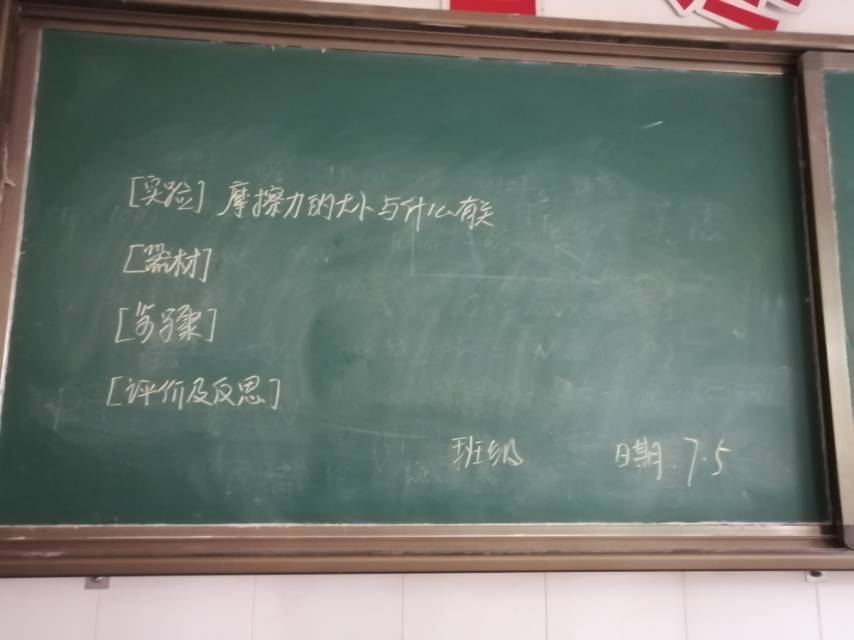 [实验] 摩擦力的大小与什么有关
[器材]
[步骤]
[评价及反思]
班级 日期 7.5